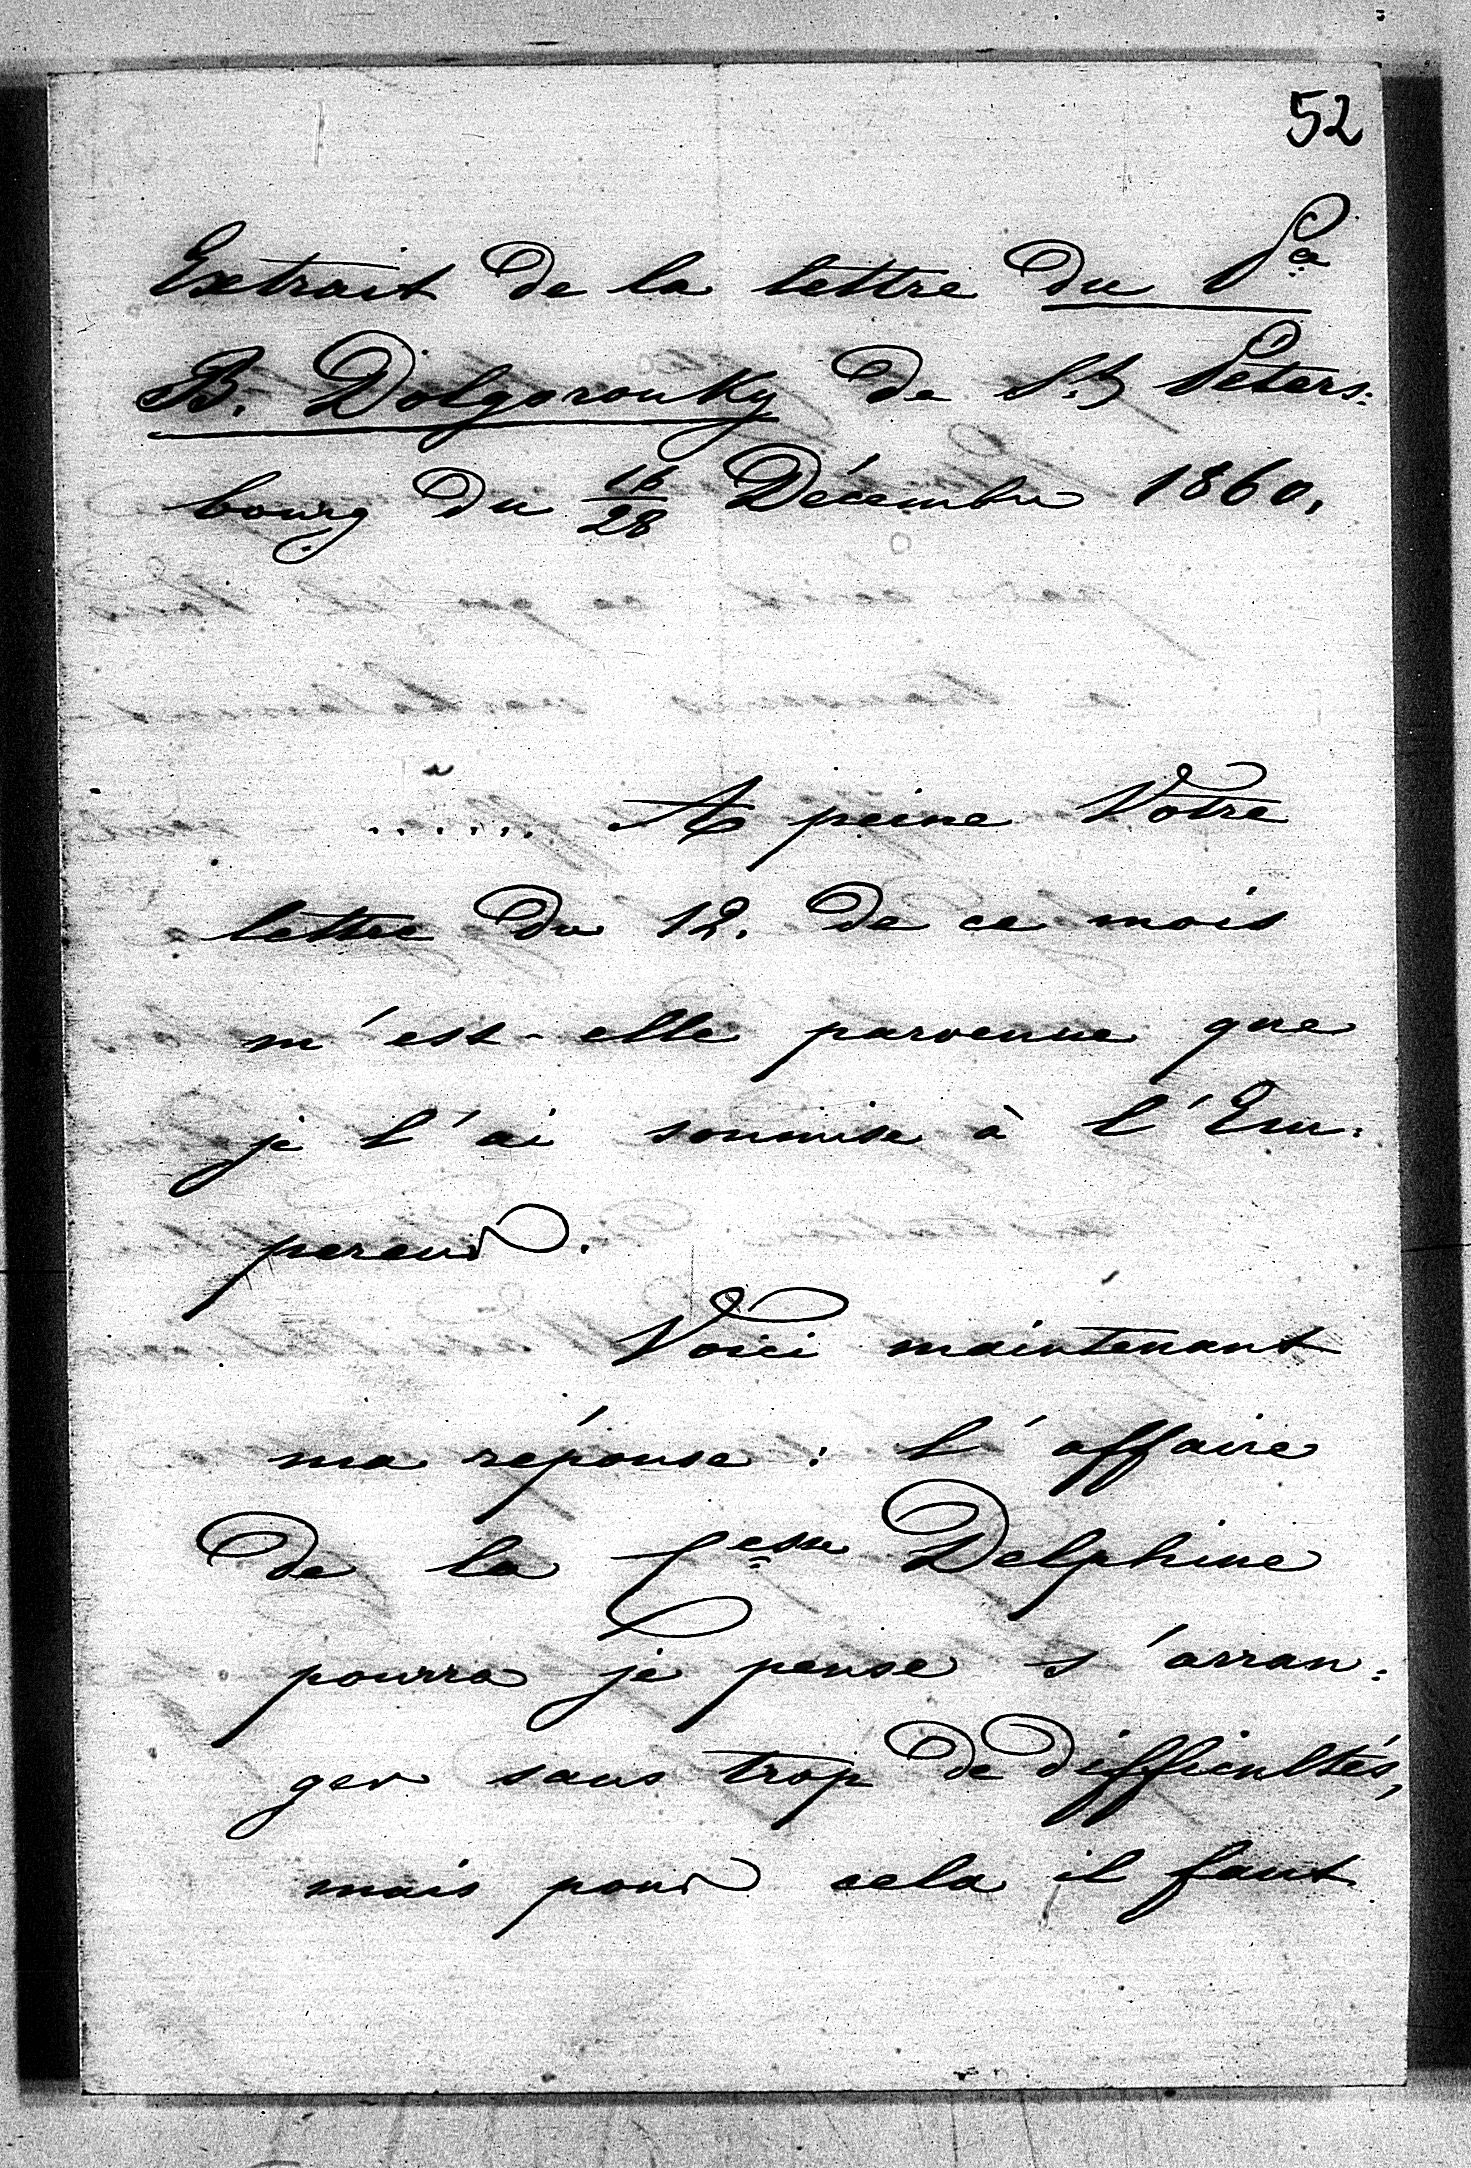 52
Extrait de la lettre du P^ce
B. Dolgorouky de St. Peters:
bourg du 16/28 Décembre 1860.
....... A peine Votre
lettre du 12. de ce mois
m'est-elle parvenue que
je l'ai soumise à l'Em:
pereur.
Voici maintenant
ma réponse: l'affaire
de la C^esse Delphine
pourra je pense s'arran:
ger sans trop de difficultés,
mais pour cela il faut